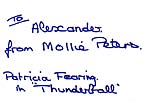 To
Alexander.
from Mollie Peters.
Patricia Fearing.
in "Thunderball"